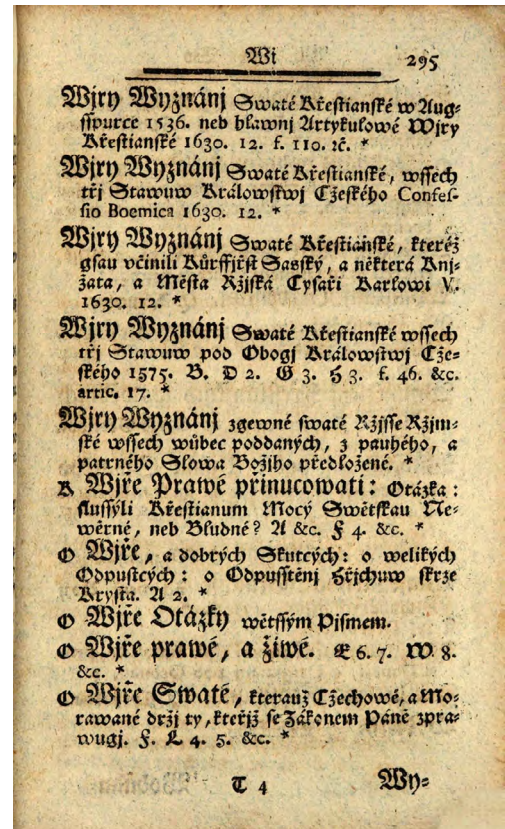 Wi 295
Wjry Wyznánj Swaté Křestianské w Aug-
sspurce 1536. neb hlawnj Artykulowé Wjry
Křestianské 1630. 12. f. 110. ꝛč. *
Wjry Wyznánj Swaté Křestianské, wssech
třj Stawuw Králowstwj Cžeského Confes-
sio Boemica 1630. 12. *
Wjry Wyznánj Swaté Křestianské, kteréž
gsau včinili Kůrffjřst Sasský, a některá Knj-
žata, a Města Ržjská Cysaři Karlowi V.
1630. 12. *
Wjry Wyznánj Swaté Křestianské wssech
třj Stawuw pod Obogj Králowstwj Cže-
ského 1575. B. D 2. G 3. H 3. f. 46. &c.
artic. 17. *
Wjry Wyznánj zgewné swaté Ržjsse Ržjm-
ské wssech wůbec poddaných, z pauhého, a
patrného Slowa Božjho předložené. *
K Wjře Prawé přinucowati: Otázka:
slussýli Křestianum Mocý Swětskau Ne-
wěrné, neb Bludné? A &c. F 4. &c. *
O Wjře, a dobrých Skutcých: o welikých
Odpustcých: o Odpusstěnj Hřjchuw skrze
Krysta. A 2. *
O Wjře Otázky wětssým Pjsmem.
O Wjře prawé, a žiwé. E 6. 7. W 8.
&c. *
O Wjře Swaté, kterauž Cžechowé, a Mo-
rawané držj ty, kteřjž se Zákonem Páně zpra-
wugj. F. L 4. 5. &c. *
T 4 Wy-